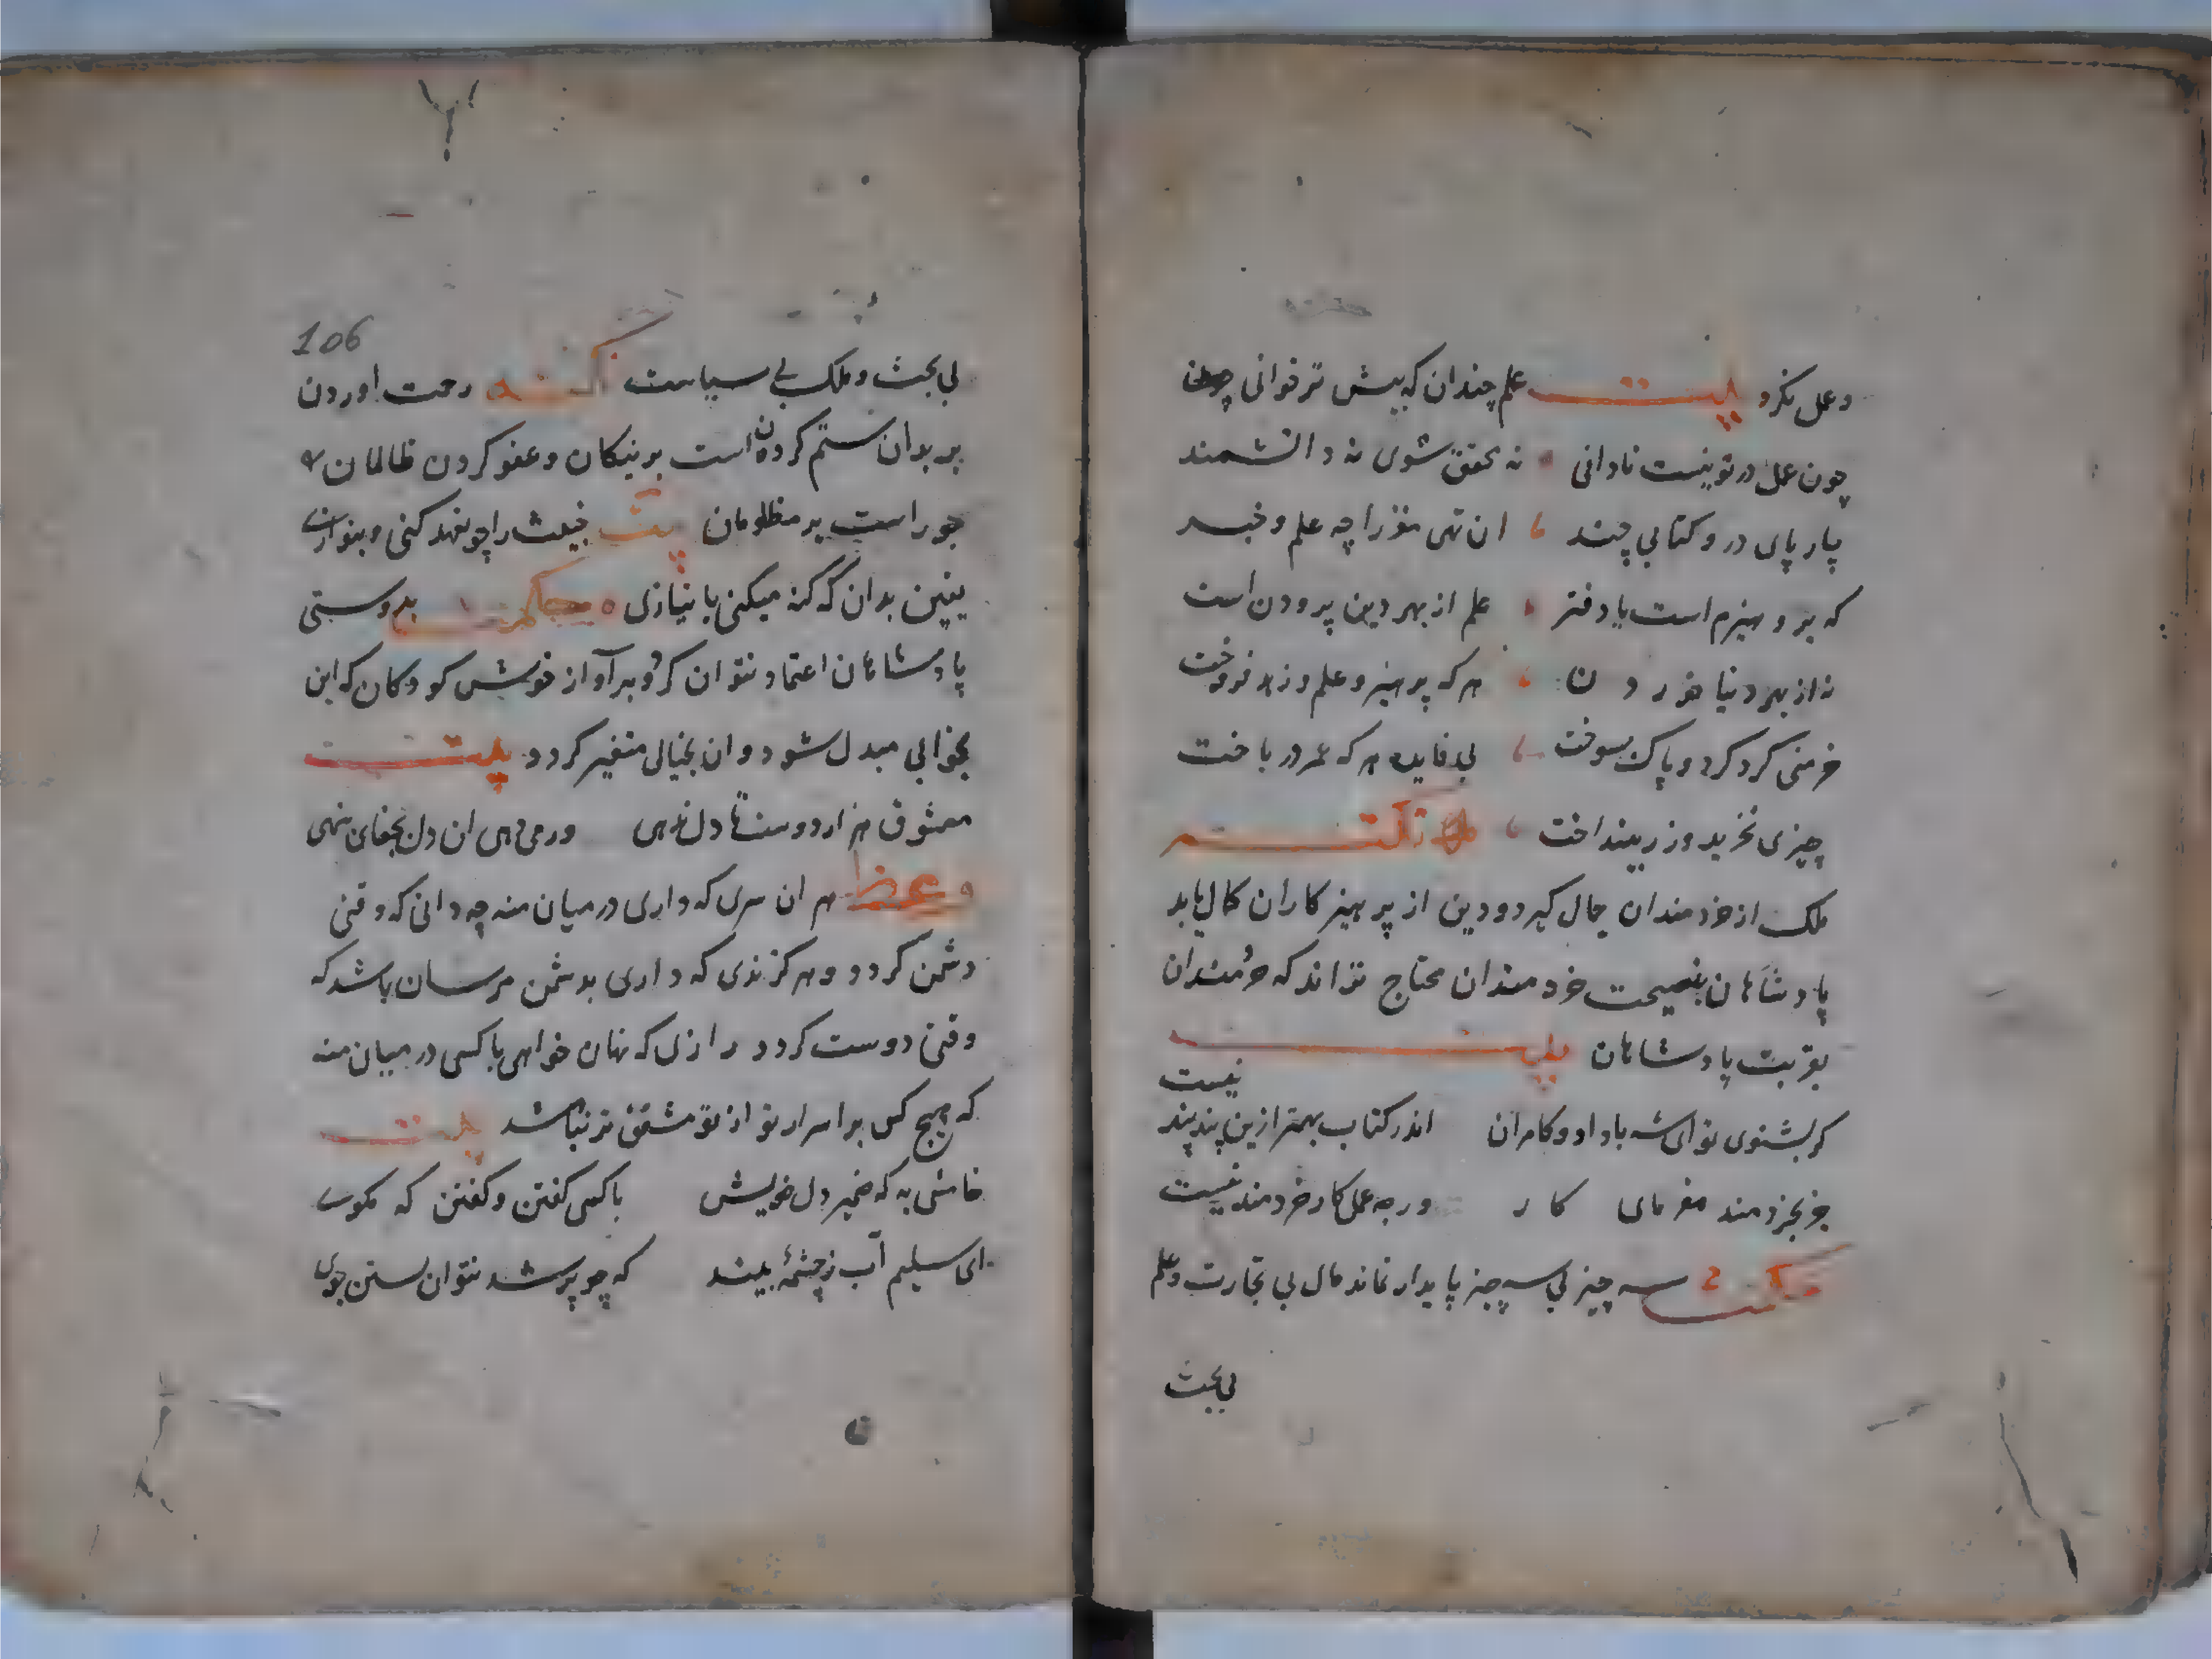 و عمل نکرد بیت علم چندان که بیش تر خوانی
چون عمل در تو نیست نادانی نه محقق شوی نه دانشمند
چارپای درو کتابی چند ان تهی مغز را چه علم و خبر
که برو هیزم است یا دفتر علم از بهر دین پرودن است
نه از بهر دنیا خوردن هر که پرهیز و علم و زهد فروخت
خرمنی کرد کرد و پاک بسوخت بی فایده هر که عمر در باخت
چیزی نخرید و زر بینداخت
ملک از خردمندان جمال کیرد و دین از پرهیزکاران کمال یابد
پادشاهان بنصیحت خردمندان محتاج تراند که خردمندان
بقربت پادشاهان بیت
کر بشنوی تو ای شه باداد و کامران اندر کتاب بهتر ازین پند پند نیست
جز بخردمند مفرمای کار ورچه عمل کار خردمند نیست
حکمت سه چیز بی سه چیز پایدار نماند مال بی تجارت و علم
بی بحث
106
بی بحث و ملک بی سیاست رحمت اوردن
بر بدان ستم کردن است بر نیکان و عفو کردن ظالمان
جور است بر مظلومان بیت خبیث را چو تعهد کنی و بنوازی
یقین بدان که کنه میکنی بانبازی بدوستی
پادشاهان اعتماد نتوان کرد و بر آواز خوش کودکان که این
بخوابی مبدل شود و ان بخیالی متغیر کردد بیت
معشوق هزار دوست تا دل ندهی ور می دهی ان دل بجفای بنهی
وعظ هر ان سری که داری در میان منه چه دانی که وقتی
دشمن کردد و هر کزندی که داری بدشمن مرسان باشد که
وقتی دوست کردد رازی که نهان خواهی با کسی در میان منه
که هیچ کس بر اسرار تو از تو مشفق تر نباشد بیت
خامشی به که ضمیر دل خویش با کسی گفتن و گفتن که مکوی
ای سلیم آب ز چشمه ببند که چو پر شد نتوان بستن جوی